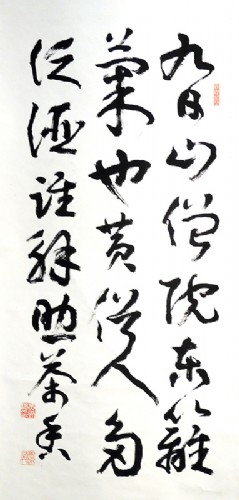 九日山僧院東籬
菊也黄俗人多
泛酒誰解助茶香